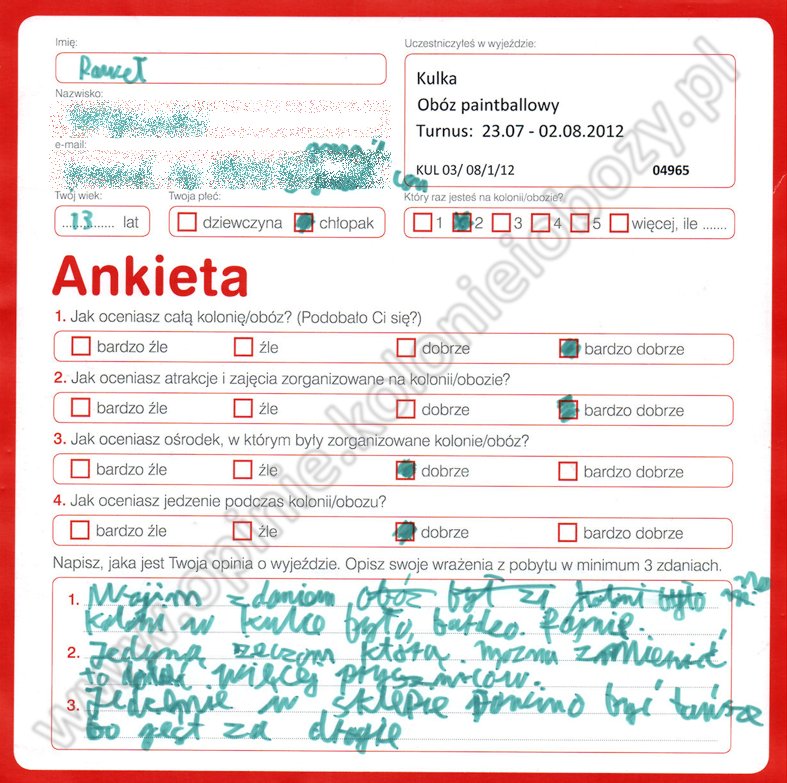 Imię:
Uczestniczyłeś w wyjeździe:
Paweł
Kulka
Obóz paintballowy
Turnus: 23.07 - 02.08.2012
KUL 03/ 08/1/12 04965
Nazwisko:
e-mail:
com
Twój wiek:
Twoja płeć:
Który raz jesteś na kolonii/obozie?
13 lat
dziewczyna chłopak
1 2 3 4 5 więcej, ile .......
Ankieta
1. Jak oceniasz całą kolonię/obóz? (Podobało Ci się?)
bardzo źle źle dobrze bardzo dobrze
2. Jak oceniasz atrakcje i zajęcia zorganizowane na kolonii/obozie?
bardzo źle źle dobrze bardzo dobrze
3. Jak oceniasz ośrodek, w którym były zorganizowane kolonie/obóz?
bardzo źle źle dobrze bardzo dobrze
4. Jak oceniasz jedzenie podczas kolonii/obozu?
bardzo źle źle dobrze bardzo dobrze
Napisz, jaka jest Twoja opinia o wyjeździe. Opisz swoje wrażenia z pobytu w minimum 3 zdaniach.
1. Moim zdaniem obóz był na
kolonii w kulce było bardzo fajnie.
2. Jedyną rzeczą którą można zmienić
to dodać więcej pryszniców.
3. Jedzenie w sklepie powino być tańsze
bo jest za drogie
www.opinie.kolonieiobozy.pl